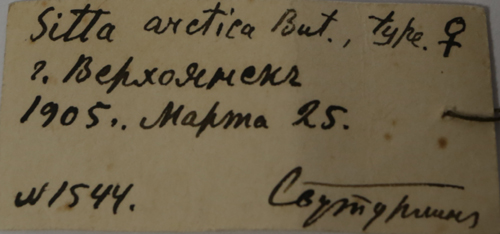 Sitta arctica But., type. ♀
г. Верхоянскъ
1905. Марта 25.
№ 1544.